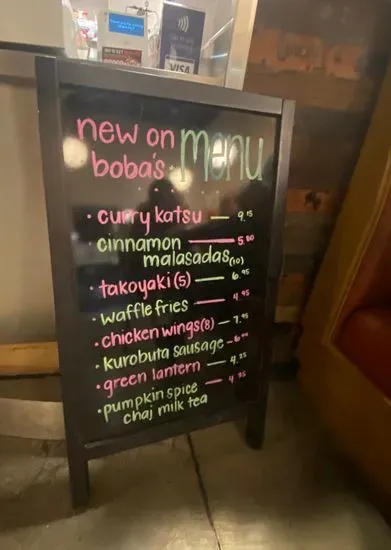 VISA
new on menu
boba's
• curry katsu — 9.15
• cinnamon — 5.00
malasadas (10)
• takoyaki (5) — 6.95
• waffle fries — 4.95
• chicken wings (8) — 7.95
• kurobuta sausage —
• green lantern — 4.25
• pumpkin spice — 4.95
chai milk tea